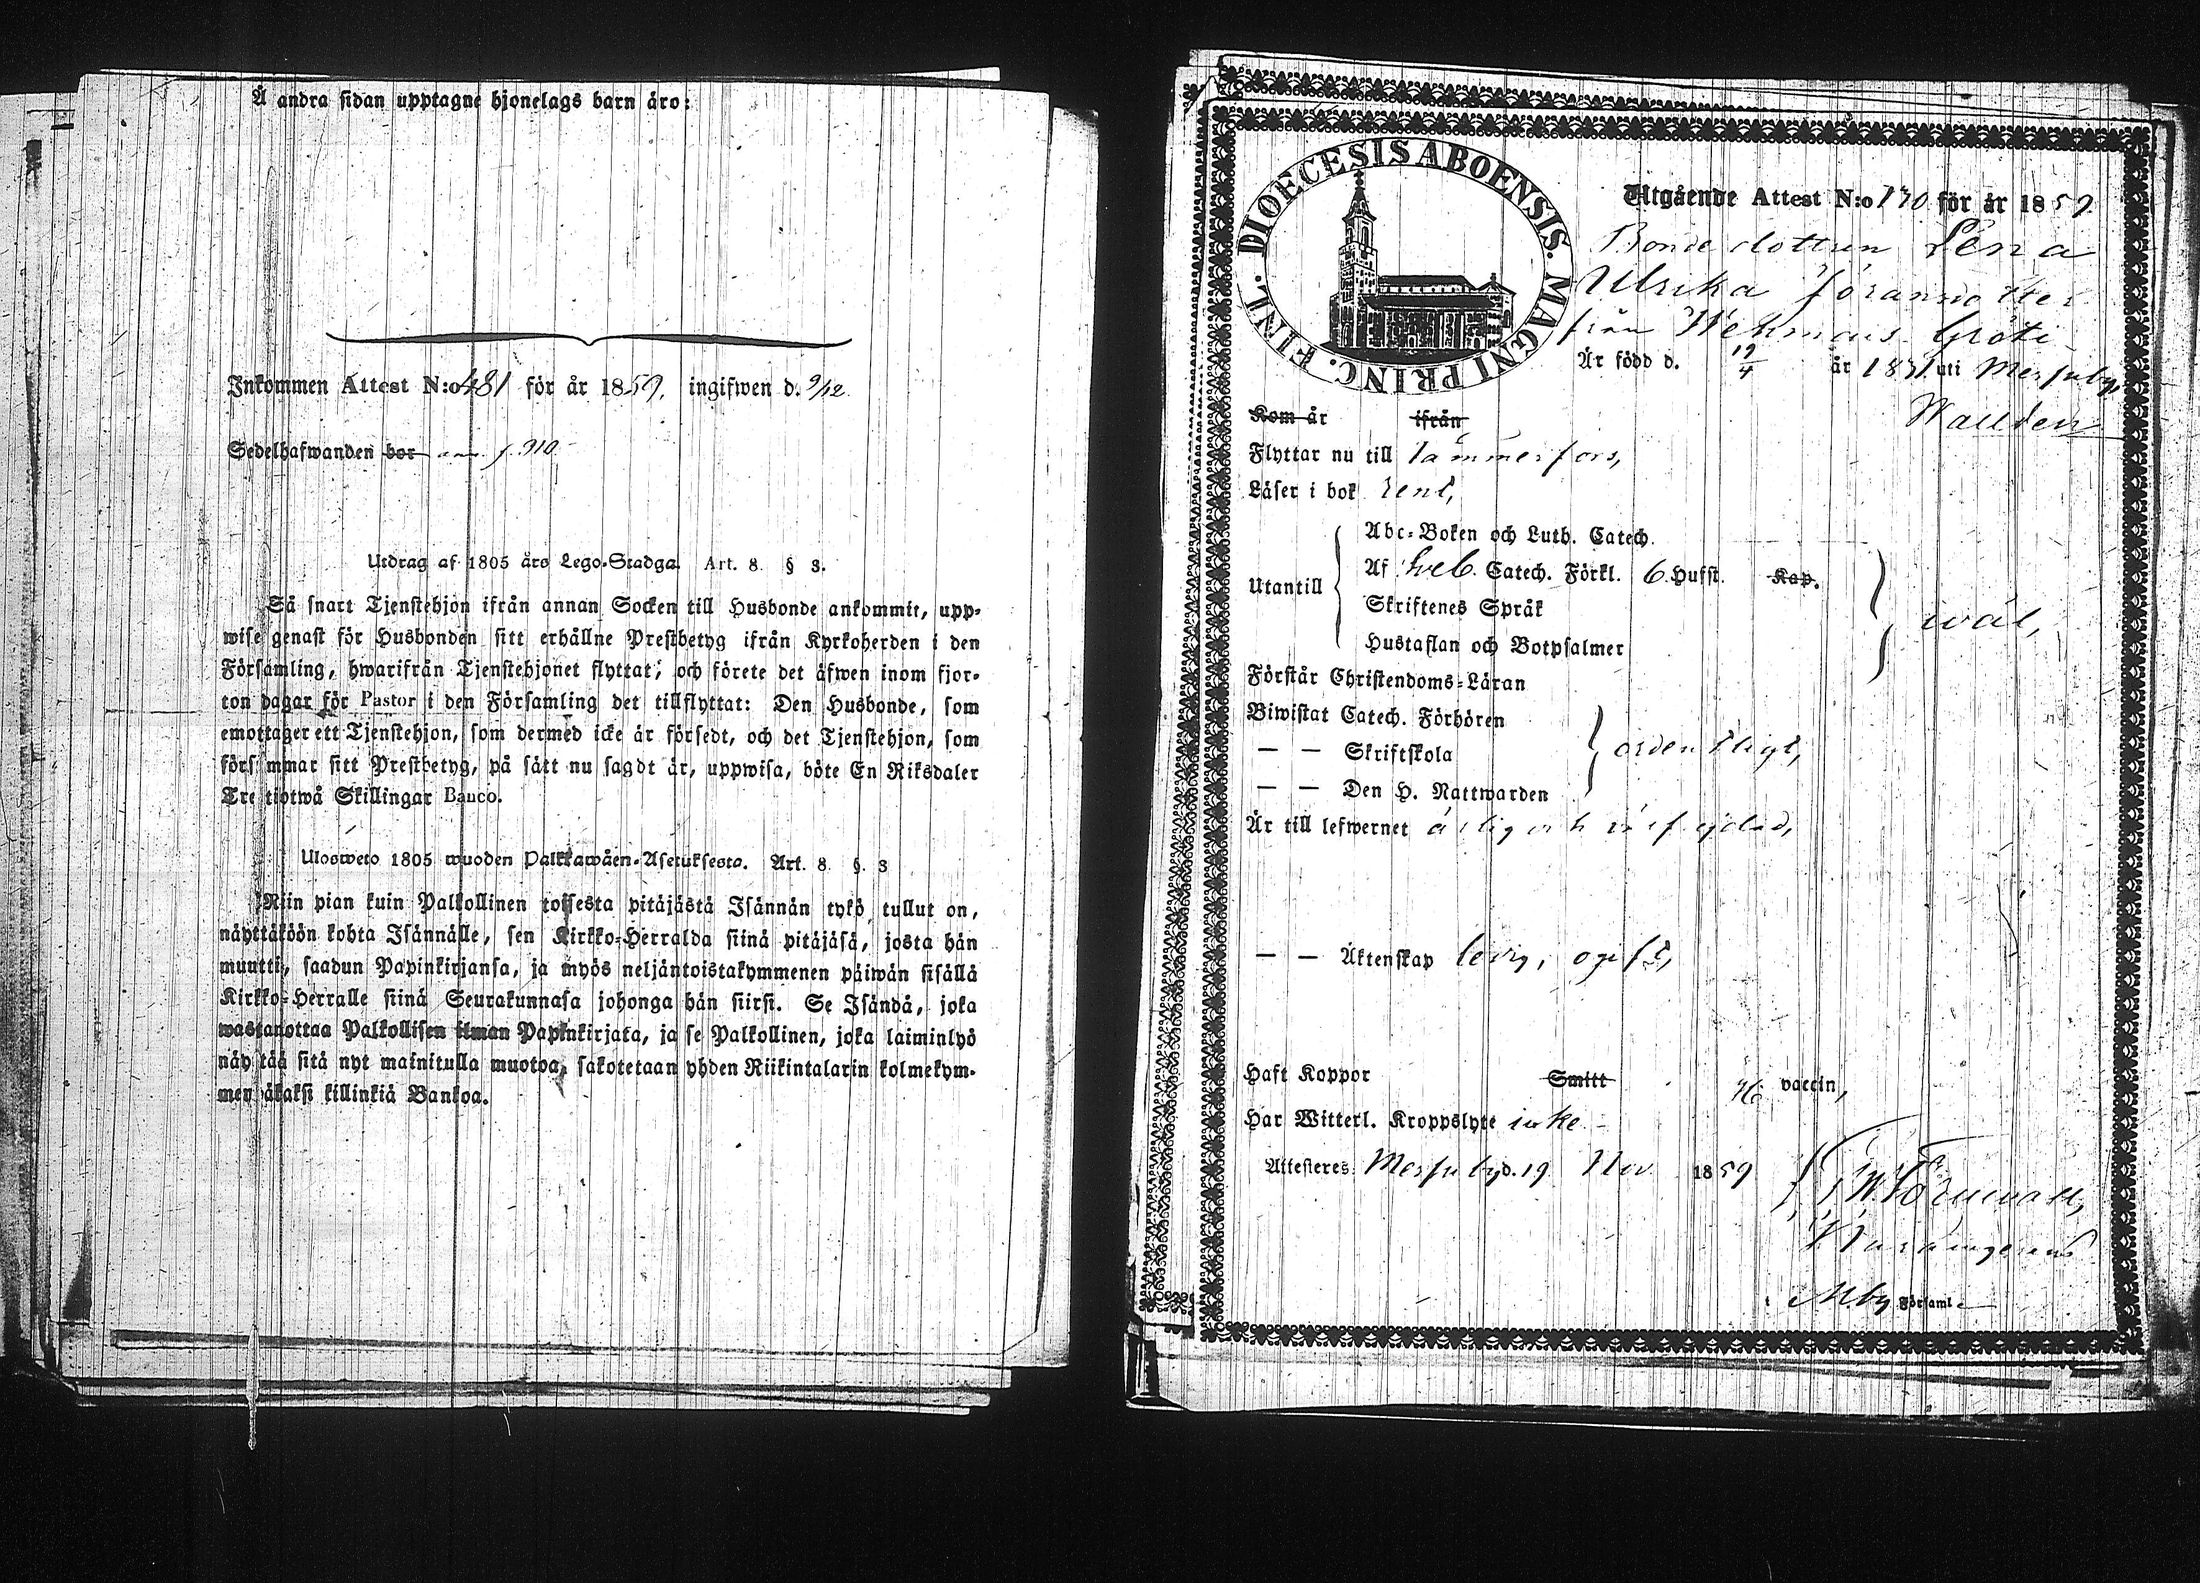 Å andra sidan upptagne hjonelags barn äro:
Inkommen Attest N:o 481 för år 1859, ingifwen d. 9/12
Sedelhafwanden bor ann. f. 910
Utdrag af 1805 års Lego-Stadga. Art. 8 § 3.
Så snart Tjenstehjon ifrån annan Socken till Husbonde ankommit, upp-
wise genast för Husbonden sitt erhållne Prestbetyg ifrån Kyrkoherden i den
Församling, hwarifrån Tjenstehjonet flyttat; och förete det äfwen inom fjor-
ton dagar för Pastor i den Församling det tillflyttat: Den Husbonde, som
emottager ett Tjenstehjon, som dermed icke är försedt, och det Tjenstehjon, som
försummar sitt Prestbetyg, på sätt nu sagdt är, uppwisa, böte En Riksdaler
Tretiotwå Skillingar Banco.
Ulosweto 1805 wuoden Palkkawäen-Asetuksesta. Art. 8 §. 3
Niin pian kuin Palkollinen toisesta pitäjästä Isännän tykö tullut on,
näyttäköön kohta Isännälle, sen Kirkko-Herralda siinä pitäjäsä, josta hän
muutti, saadun Papinkirjansa, ja myös neljäntoistakymmenen päiwän sisällä
Kirkko-Herralle siinä Seurakunnasa johonga hän siirsi. Se Isändä, joka
wastanottaa Palkollisen ilman Papinkirjata, ja se Palkollinen, joka laiminlyö
näyttää sitä nyt mainitulla muotoa, sakotetaan yhden Riikintalarin kolmekym-
menäkaksi killinkiä Bankoa.
DIOECESIS ABOENSIS. MAGNI PRINC. FINL.
Utgående Attest N:o 130 för år 1859.
Bondedottren Lena
Ulrika Göransdotter
från Wehmais Gröti
Är född d. 19/4 år 1831 uti Mersuby,
Kom år ifrån
Flyttar nu till Tammerfors,
Läser i bok rent,
Abc-Boken och Luth. Catech.
Utantill
Af Sveb. Catech. Förkl. 6. Hufst. Kap.
Skriftenes Språk
Hustaflan och Botpsalmer
wäl,
Förstår Christendoms-Läran
Biwistat Catech. Förhören
— — Skriftskola
ordentligt,
— — Den H. Nattwarden
Är till lefwernet ärlig och wälfrejdad,
— — Äktenskap ledig, ogift,
Haft Koppor Smitt vaccin,
Har Witterl. Kroppslyte icke
Attesteres Mersuby d. 19 Nov 1859
i Mby Församl